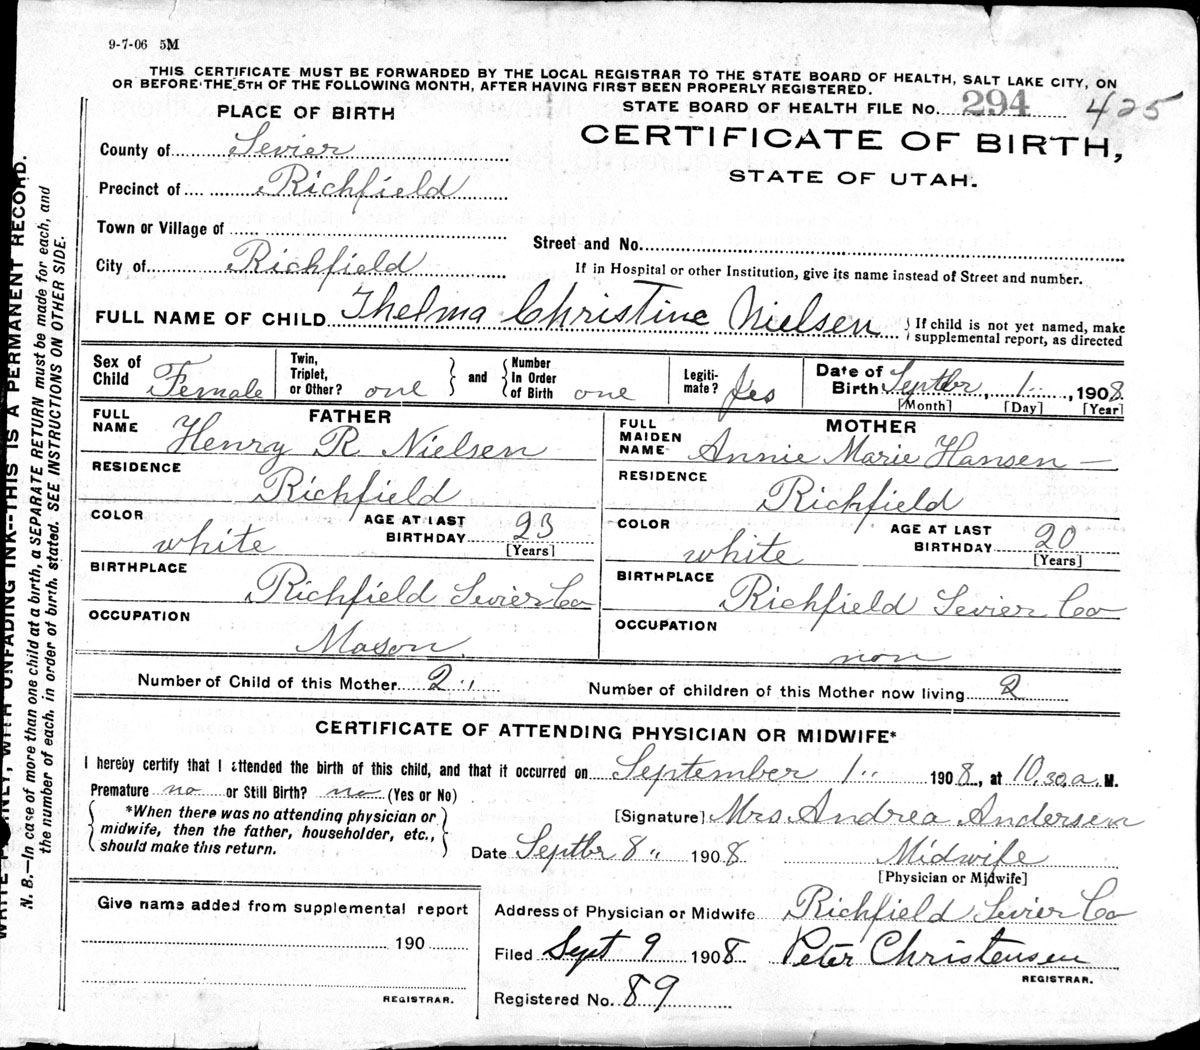 9-7-06 5M
THIS CERTIFICATE MUST BE FORWARDED BY THE LOCAL REGISTRAR TO THE STATE BOARD OF HEALTH, SALT LAKE CITY, ON
OR BEFORE THE 5TH OF THE FOLLOWING MONTH, AFTER HAVING FIRST BEEN PROPERLY REGISTERED.
STATE BOARD OF HEALTH FILE No. 294 425
PLACE OF BIRTH
CERTIFICATE OF BIRTH,
STATE OF UTAH.
County of Sevier
Precinct of Richfield
Town or Village of
Street and No.
City of Richfield
If in Hospital or other Institution, give its name instead of Street and number.
FULL NAME OF CHILD Thelma Christine Nielsen } If child is not yet named, make supplemental report, as directed
Sex of Child Female
Twin, Triplet, or Other? one } and { Number In Order of Birth one
Legitimate? Yes
Date of Birth Septber 1, 1908
[Month] [Day] [Year]
FATHER
FULL NAME Henry R. Nielsen
RESIDENCE
Richfield
COLOR white
AGE AT LAST BIRTHDAY 23
[Years]
BIRTHPLACE
Richfield Sevier Co
OCCUPATION
Mason.
MOTHER
FULL MAIDEN NAME Annie Marie Hansen
RESIDENCE
Richfield
COLOR white
AGE AT LAST BIRTHDAY 20
[Years]
BIRTHPLACE
Richfield Sevier Co
OCCUPATION
non
Number of Child of this Mother 2
Number of children of this Mother now living 2
CERTIFICATE OF ATTENDING PHYSICIAN OR MIDWIFE*
I hereby certify that I attended the birth of this child, and that it occurred on September 1 1908, at 10.30 a. M.
Premature no or Still Birth? no (Yes or No)
{ *When there was no attending physician or
midwife, then the father, householder, etc.,
should make this return. }
[Signature] Mrs Andrea Andersen
Date Septber 8 1908
Midwife
[Physician or Midwife]
Address of Physician or Midwife Richfield Sevier Co
Filed Sept 9 1908 Peter Christensen
REGISTRAR.
Registered No. 89
Give name added from supplemental report
190
REGISTRAR.
WITH UNFADING INK--THIS IS A PERMANENT RECORD.
N. B.—In case of more than one child at a birth, a SEPARATE RETURN must be made for each, and
the number of each, in order of birth, stated. SEE INSTRUCTIONS ON OTHER SIDE.